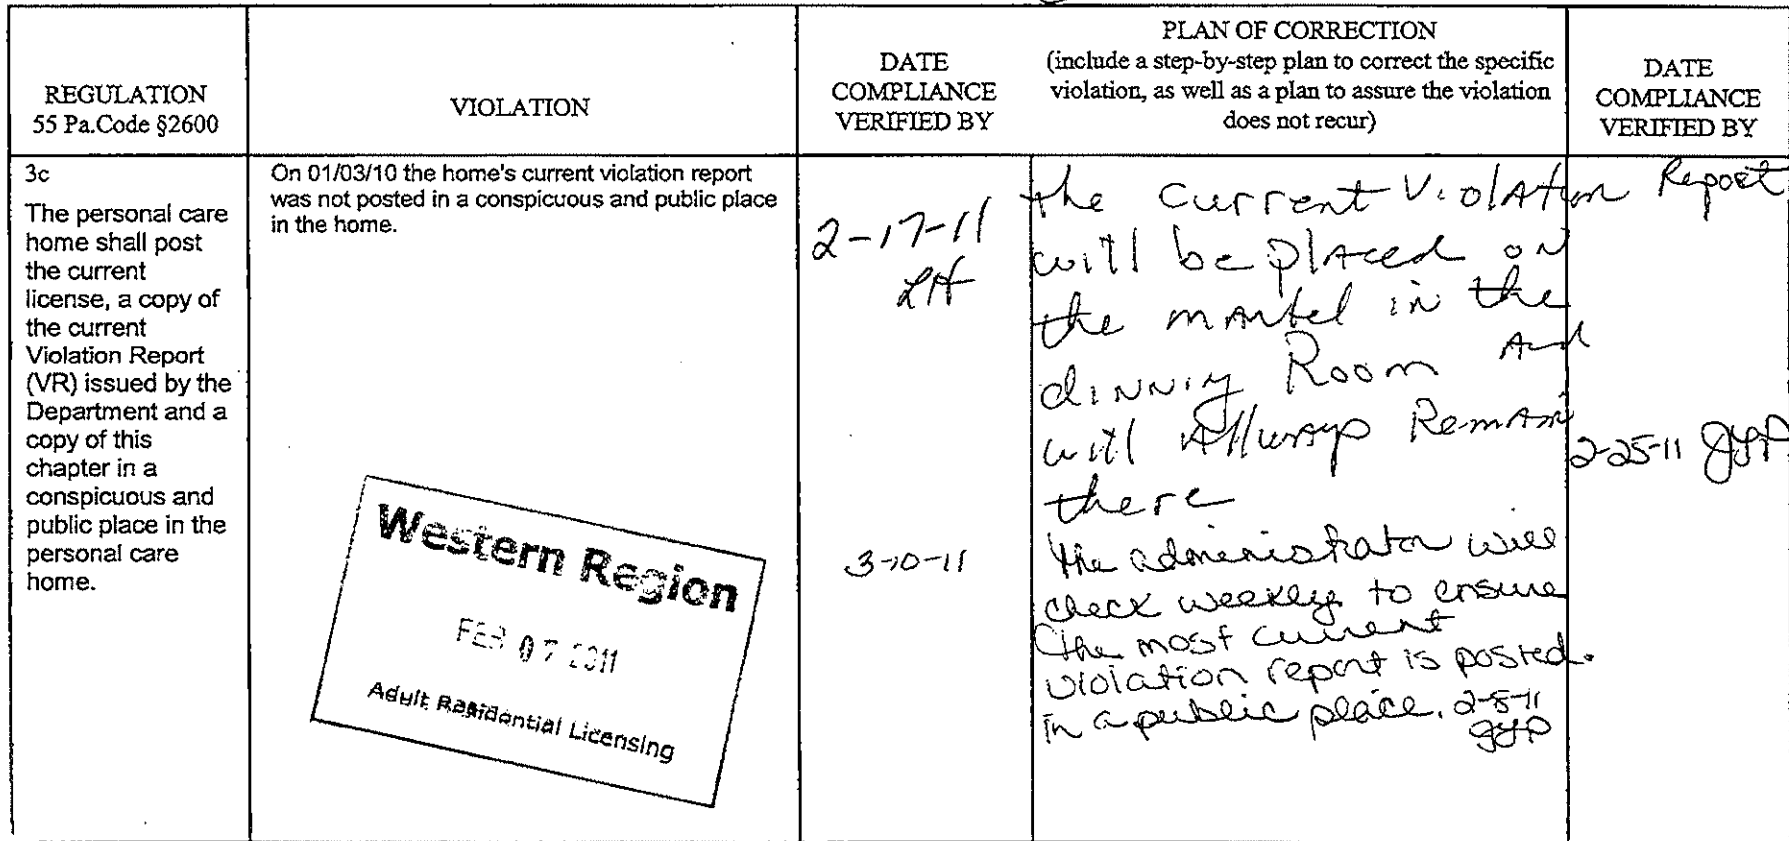 REGULATION
55 Pa.Code §2600
VIOLATION
DATE
COMPLIANCE
VERIFIED BY
PLAN OF CORRECTION
(include a step-by-step plan to correct the specific
violation, as well as a plan to assure the violation
does not recur)
DATE
COMPLIANCE
VERIFIED BY
3c
The personal care
home shall post
the current
license, a copy of
the current
Violation Report
(VR) issued by the
Department and a
copy of this
chapter in a
conspicuous and
public place in the
personal care
home.
On 01/03/10 the home's current violation report
was not posted in a conspicuous and public place
in the home.
Western Region
FEB 07 2011
Adult Residential Licensing
2-17-11
LH
3-10-11
the Current Violation Report
will be placed on
the mantel in the
dinning Room And
will Allways Remain
there
the administrator will
check weekly to ensure
the most current
violation report is posted.
in a public place. 2-8-11
gyp
2-25-11 gyp